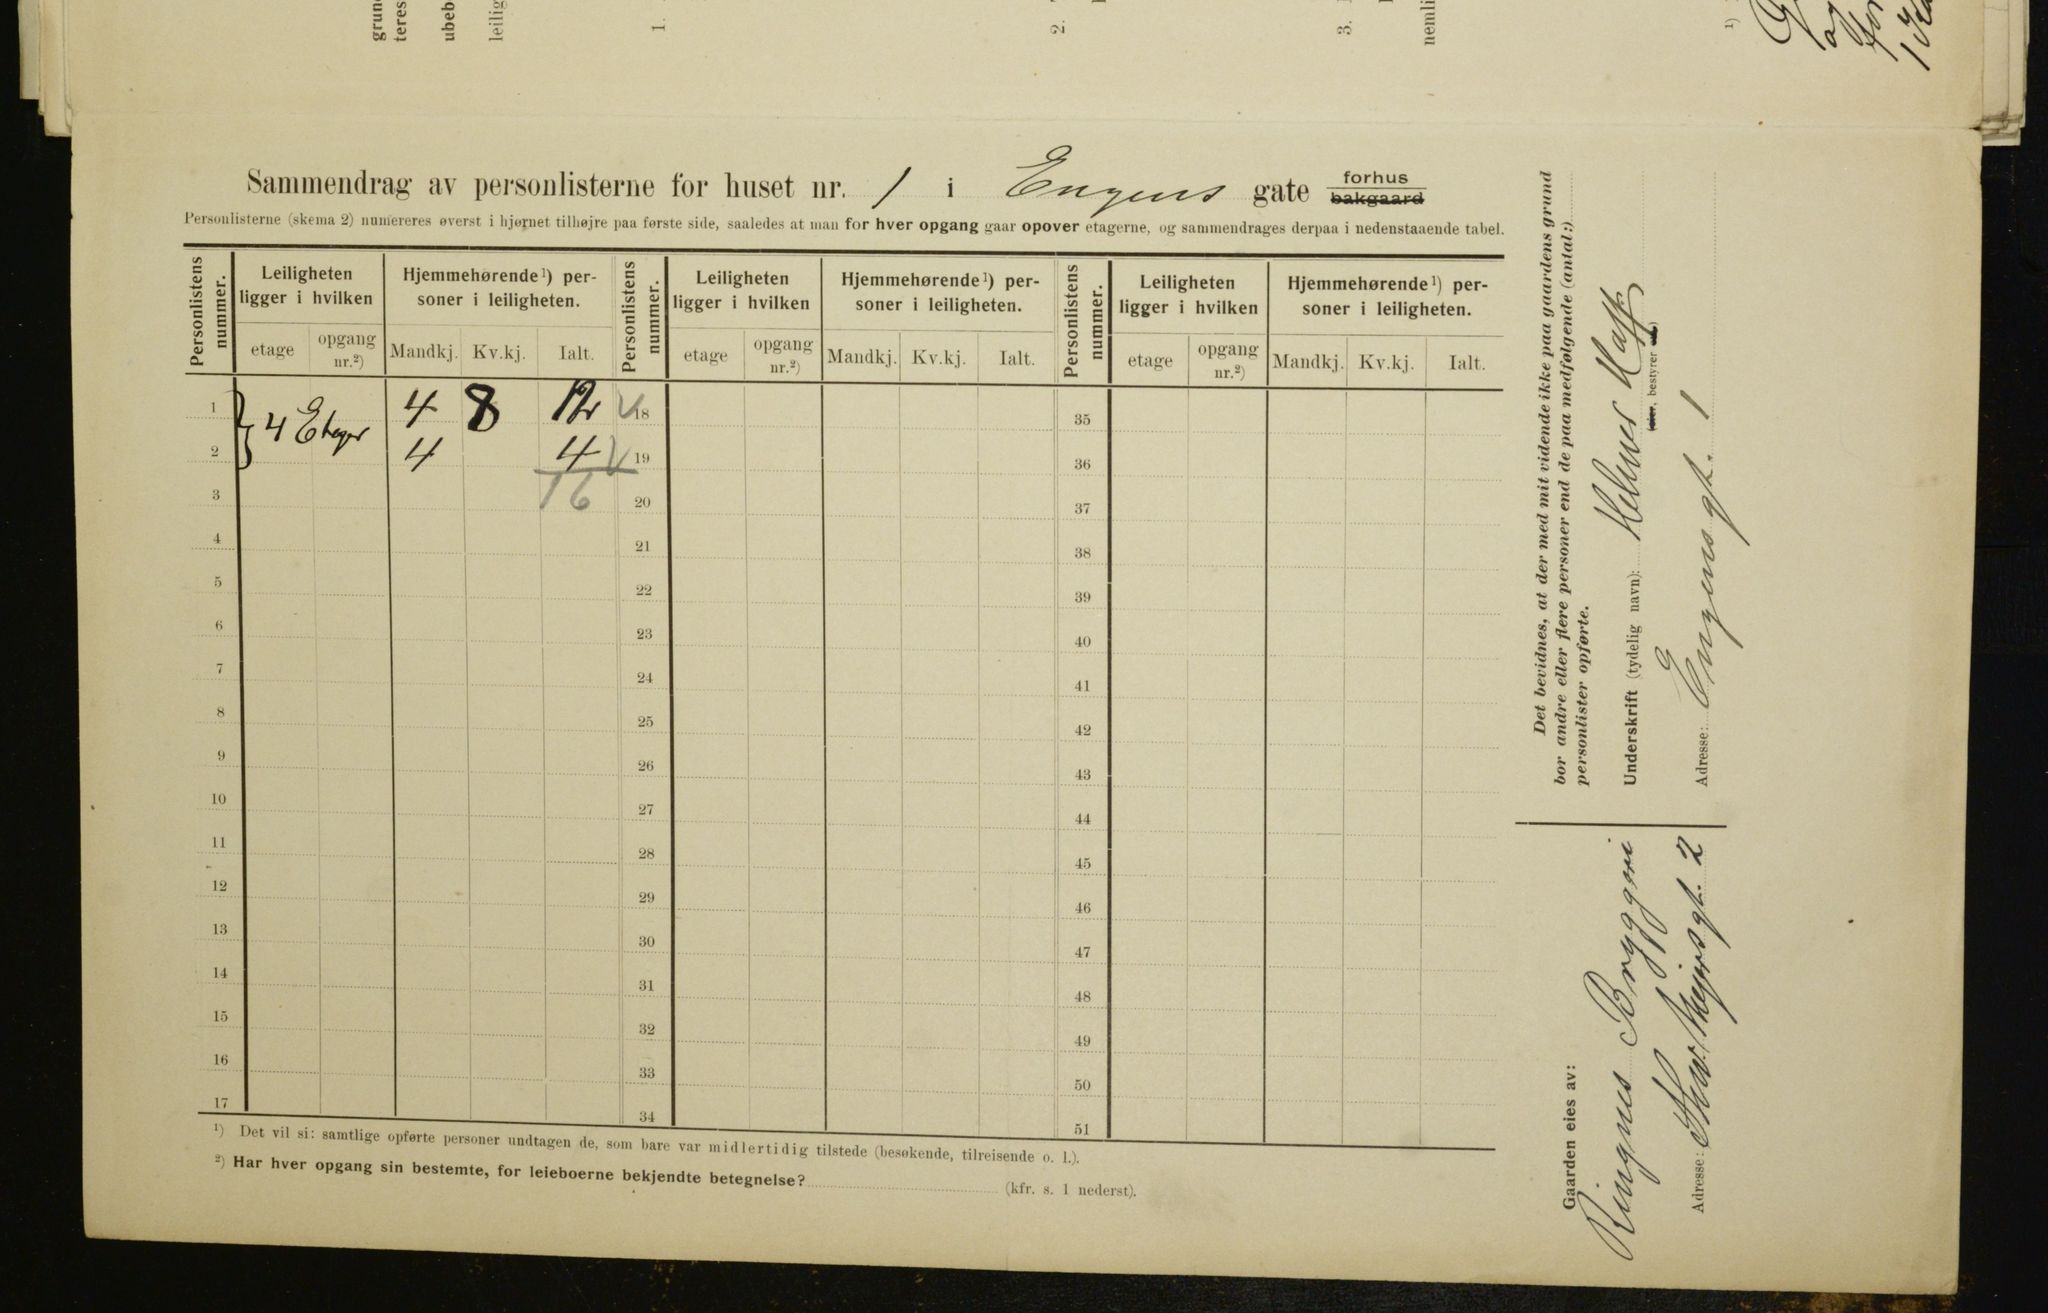 grun
teres
ubeb
leilig
1.
2.
3.
nemli
1)
Sammendrag av personlisterne for huset nr. 1 i Engens gate forhus
bakgaard
Personlisterne (skema 2) numereres øverst i hjørnet tilhøjre paa første side, saaledes at man for hver opgang gaar opover etagerne, og sammendrages derpaa i nedenstaaende tabel.
Personlistens nummer. Leiligheten ligger i hvilken Hjemmehørende 1) personer i leiligheten. Personlistens nummer. Leiligheten ligger i hvilken Hjemmehørende 1) personer i leiligheten. Personlistens nummer. Leiligheten ligger i hvilken Hjemmehørende 1) personer i leiligheten.
etage opgang nr.2) Mandkj. Kv.kj. Ialt. etage opgang nr.2) Mandkj. Kv.kj. Ialt. etage opgang nr.2) Mandkj. Kv.kj. Ialt.
1 4 Etager 4 8 12 18 35
2 4 4 19 36
3 16 20 37
4 21 38
5 22 39
6 23 40
7 24 41
8 25 42
9 26 43
10 27 44
11 28 45
12 29 46
13 30 47
14 31 48
15 32 49
16 33 50
17 34 51
1) Det vil si: samtlige opførte personer undtagen de, som bare var midlertidig tilstede (besøkende, tilreisende o. l.).
2) Har hver opgang sin bestemte, for leieboerne bekjendte betegnelse? (kfr. s. 1 nederst).
Det bevidnes, at der med mit vidende ikke paa gaardens grund
bor andre eller flere personer end de paa medfølgende (antal:)
personlister opførte.
Underskrift (tydelig navn): Helmer
(eier, bestyrer etc.)
Adresse: Engens gt. 1
Gaarden eies av:
Ringnes Bryggeri
Adresse: Thv. Meyers gt. 2